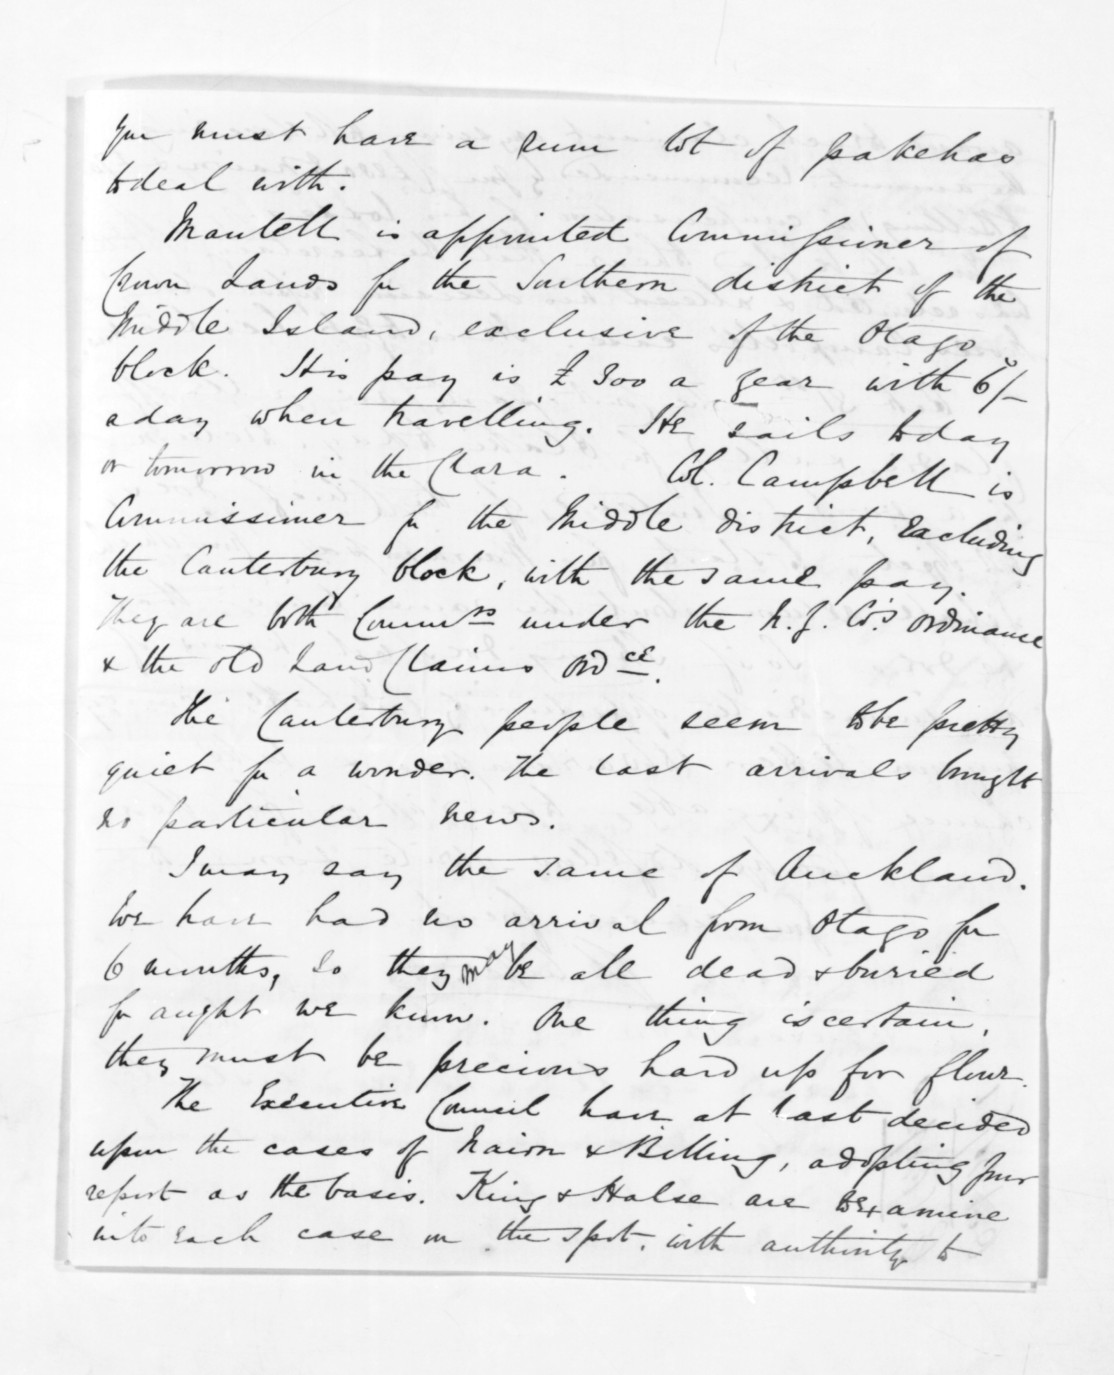 you must have a rum lot of pakehas
to deal with.
Mantell is appointed Commissioner of
Crown Lands for the Southern district of the
Middle Island, exclusive of the Otago
block. His pay is £300 a year with 6/-
a day when travelling. He sails today
or tomorrow in the Clara. Col. Campbell is
Commissioner for the Middle district, excluding
the Canterbury block, with the same pay.
They are both Commrs under the N.Z. Co's ordinance
& the old Land Claims Ordce.
The Canterbury people seem to be pretty
quiet for a wonder. The last arrivals brought
no particular news.
I may say the same of Auckland.
We have had no arrival from Otago for
6 months, so they may be all dead & buried
for aught we know. One thing is certain,
they must be precious hard up for flour.
The Executive Council have at last decided
upon the cases of Nairn & Billing, adopting your
report as the basis. King & Halse are to examine
into each case on the spot, with authority to